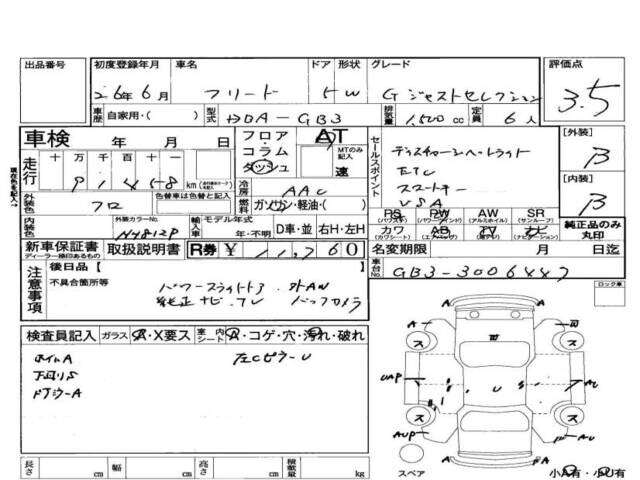 出品番号 初度登録年月 車名 ドア 形状 グレード 評価点
26年6月 フリード 5W Gジャストセレクション 3.5
車歴 自家用・( ) 型式 DDA-GB3 排気量 1,500 cc 定員 6人
車検 年 月 日 フロア・コラム ダッシュ AT MTのみ記入 速
走行 十 万 千 百 十 一 km
セールスポイント ディスチャージヘッドライト
ETC
スマートキー
VSA
[外装] B
[内装] B
現在色を記入→
外装色 クロ 色替車は色替と記入 冷房 AAC
燃料 ガソリン・軽油・( )
内装色 外装カラーNo. NH812P 輸入車 モデル年式 年・不明 D車・並 右H・左H
PS (パワステ) PW (パワーウィンド) AW (アルミホイル) SR (サンルーフ)
カワ (カワシート) AB (エアバッグ) TV ナビ (ナビゲーション)
純正品のみ丸印
新車保証書 ディーラー捺印あるもの 取扱説明書 R券 ¥
名変期限 月 日迄
車台No. GB3-3006447
注意事項 後日品【 】
不具合箇所等 パワースライドド
純正ナビ・TV バックカメラ
ロック車
検査員記入 ガラス A・X要ス 室内シート A・コゲ・穴・汚れ・破れ
ホイルA 左CピラーU
下回りS
ドアミラーA
長さ cm 幅 cm 高さ cm 積載量 kg
スペア 小A有・小U有